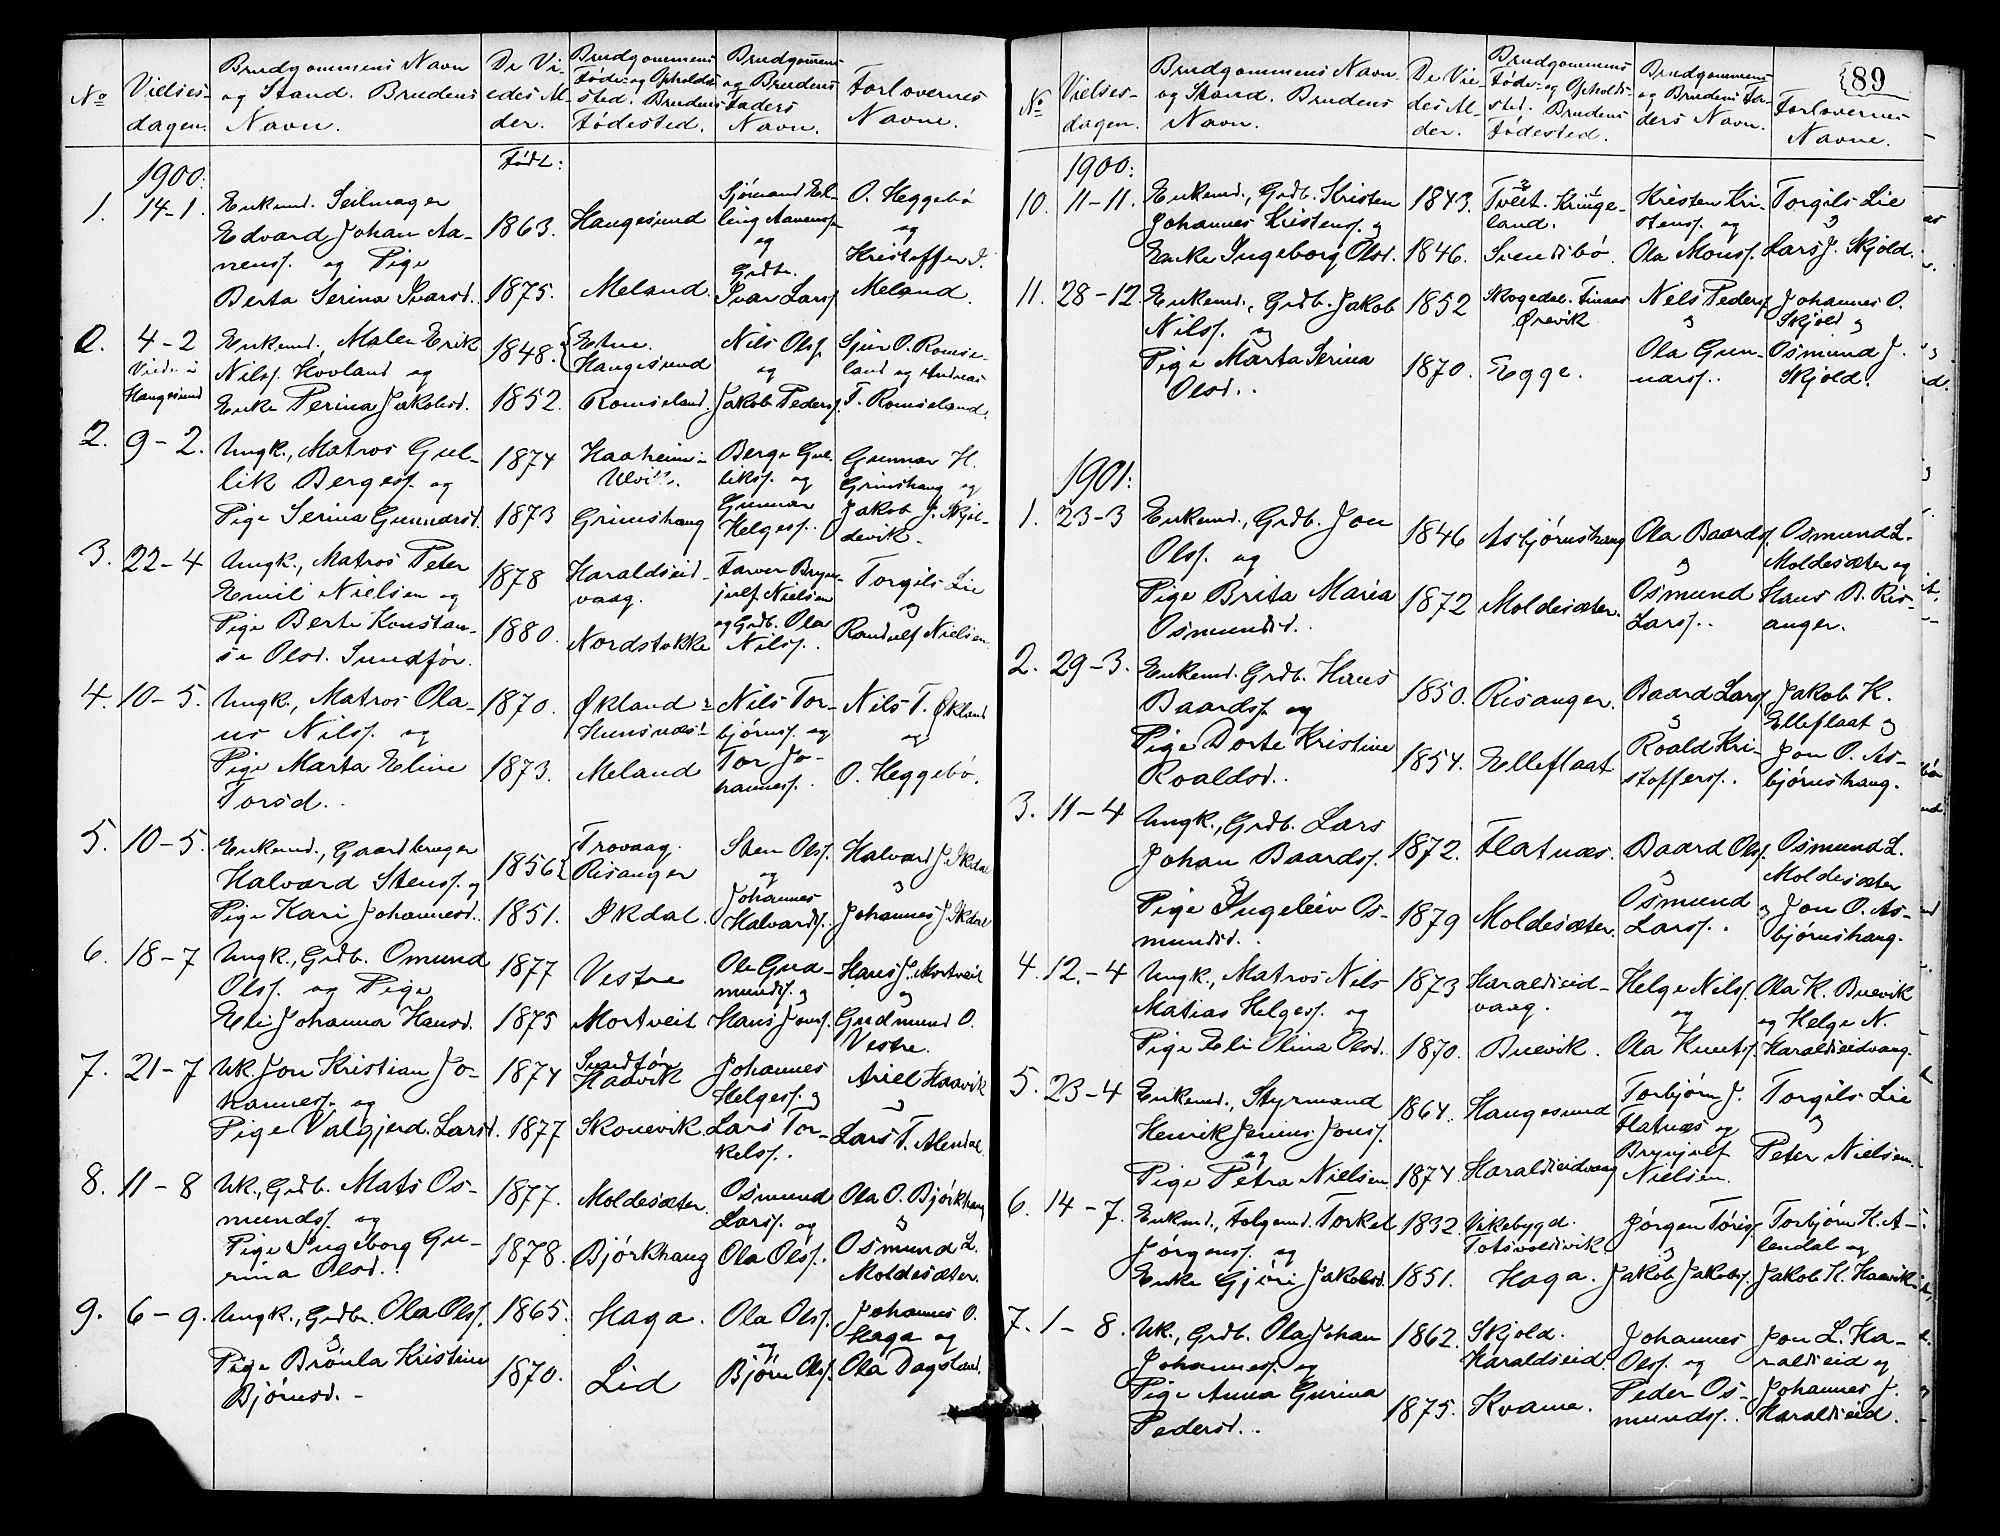 89
No
Vielses-
dagen.
Brudgommens Navn
og Stand. Brudens
Navn.
De Vi-
edes Al-
der.
Brudgommens
Føde- og Opholds-
sted. Brudens
Fødested.
Brudgommens
og Brudens
Faders
Navn.
Forlovernes
Navne.
1900.
Født:
1. 14-1.
Enkemd. Seilmager
Edvard Johan Aa-
nensf. og Pige
Berta Serina Ivarsd.
1863.
1875.
Haugesund
Meland.
Sjømand El-
ling Aanensf.
og
Grdbr.
Ivar Larsf.
O. Heggebø
og
Kristoffer I.
Meland.
0. 4-2
Viede i
Haugesund
Enkemd., Maler Erik
Nilsf. Hovland og
Enke Perina Jakobsd.
1848.
1852.
Etne.
Haugesund
Romseland.
Nils Olsf.
og
Jakob Pedersf.
Sjur O. Romse-
land og Andreas
T. Romseland.
2. 9-2.
Ungk., Matros Gul-
lik Bergesf. og
Pige Serina Gunnarsd.
1874
1873
Haaheim i
Ulvik.
Grimshaug
Berge Gul-
liksf. og
Gunnar
Helgesf.
Gunnar H.
Grimshaug og
Jakob J. Skjol-
devik.
3. 22-4
Ungk., Matros Peter
Emil Nielsen og
Pige Berte Konstan-
se Olsd. Sundfør.
1878
1880.
Haraldseid-
vaag.
Nordstokke
Farver Bryn-
julf Nielsen
og Grdb. Ola
Nilsf.
Torgils Lie
og
Randulf Nielsen
4. 10-5.
Ungk., Matros Ola-
us Nilsf. og
Pige Marta Eline
Torsd.
1870.
1873.
Økland i
Hunsnæs
Meland
Nils Tor-
bjørnsf. og
Tor Jo-
hannesf.
Nils T. Økland
og
O. Heggebø.
5. 10-5.
Enkemd., Gaardbruger
Halvard Stensf. og
Pige Kari Johannesd.
1856
1851.
Trovaag.
Risanger
Ikdal.
Sten Olsf.
og
Johannes
Halvardsf.
Halvard J. Ikdal
og
Johannes J. Ikdal
6. 18-7
Ungk., Grdb. Omund
Olsf. og Pige
Eli Johanna Hansd.
1877
1875
Vestre
Mortveit
Ole Gud-
mundsf. og
Hans Jonsf.
Hans J. Mortveit
og
Gudmund O.
Vestre.
7. 21-7
Uk. Jon Kristian Jo-
hannesf. og
Pige Valgjerd Larsd.
1874
1877
Sundfør
Haavik
Skonevik
Johannes
Helgesf. og
Lars Tor-
kelsf.
Ariel Haavik
og
Lars T. Alendal.
8. 11-8
Uk., Grdb. Mats Os-
mundsf. og
Pige Ingeborg Gu-
rina Olsd.
1877.
1878.
Moldesæter.
Bjørkhaug
Osmund
Larsf. og
Ola Olsf.
Ola O. Bjørkhaug
og
Osmund L.
Moldesæter.
9. 6-9.
Ungk., Grdbr. Ola Olsf.
og
Pige Brønla Kristine
Bjørnsd.
1865.
1870.
Haga.
Lid
Ola Olsf.
og
Bjørn Olsf.
Johannes O.
Haga og
Ola Dagsland.
No
Vielses-
dagen.
Brudgommens Navn
og Stand. Brudens
Navn.
De Vie-
des Al-
der.
Brudgommens
Føde- og Opholds-
sted. Brudens
Fødested.
Brudgommens
og Brudens Fa-
ders Navn.
Forlovernes
Navne.
1900:
10. 11-11.
Enkemd., Grdb. Kristen
Johannes Kristensf. og
Enke Ingeborg Olsd.
1843.
1846.
Tveit. Kringe-
land.
Svendsbø.
Kristen Kri-
stensf. og
Ola Monsf.
Torgils Lie
og
Lars J. Skjold.
11. 28-12
Enkemd., Grdb. Jakob
Nilsf. og
Pige Marta Serina
Olsd.
1852
1870.
Skogedal. Finnaas
Ørevik
Egge.
Nils Pedersf.
og
Ola Gun-
narsf.
Johannes O.
Skjold og
Osmund J.
Skjold.
1901:
1. 23-3
Enkemd., Grdb. Jon
Olsf. og
Pige Brita Maria
Osmundsd.
1846
1872
Asbjørnshaug
Moldesæter.
Ola Baardsf.
og
Osmund
Larsf.
Osmund L.
Moldesæter og
Hans B. Ris-
anger.
2. 29-3.
Enkemd. Grdb. Hans
Baardsf. og
Pige Dorte Kristine
Roaldsd.
1850.
1854.
Risanger.
Elleflaat
Baard Larsf.
og
Roald Kri-
stoffersf.
Jakob K.
Elleflaat og
Jon O. As-
bjørnshaug.
3. 11-4
Ungk., Grdb. Lars
Johan Baardsf.
og
Pige Ingeleiv Os-
mundsd.
1872.
1879
Flatnæs.
Moldesæter.
Baard Olsf.
og
Osmund
Larsf.
Osmund L.
Moldesæter
og Jon O. As-
bjørnshaug.
4. 12-4
Ungk., Matros Nils
Matias Helgesf. og
Pige Eli Olina Olsd.
1873
1870.
Haraldseid-
vaag.
Buevik.
Helge Nilsf.
og
Ola Knutsf.
Ola K. Buevik
og Helge N.
Haraldseidvaag.
5. 23-4
Enkemd., Styrmand
Henrik Jenius Jonsf.
og
Pige Petra Nielsen
1864.
1874
Haugesund
Haraldseidvaag
Torbjørn J.
Flatnæs og
Brynjulf
Nielsen.
Torgils Lie
og
Peter Nielsen.
6. 14-7.
Enkmd., Folgemd. Torkel
Jørgensf. og
Enke Gjøri Jakobsd.
1832.
1851.
Vikebygd.
Haga.
Jørgen Tørisf.
og
Jakob Jakobsf.
Torbjørn K. A-
lendal og
Jakob H. Haavik
7. 1-8.
Uk., Grdb. Ola Johan
Johannesf. og
Pige Anna Gurina
Pedersd.
1862.
1875.
Skjold.
Haraldseid.
Kvame.
Johannes
Olsf. og
Peder Os-
mundsf.
Jon L. Ha-
raldseid og
Johannes J.
Haraldseid.